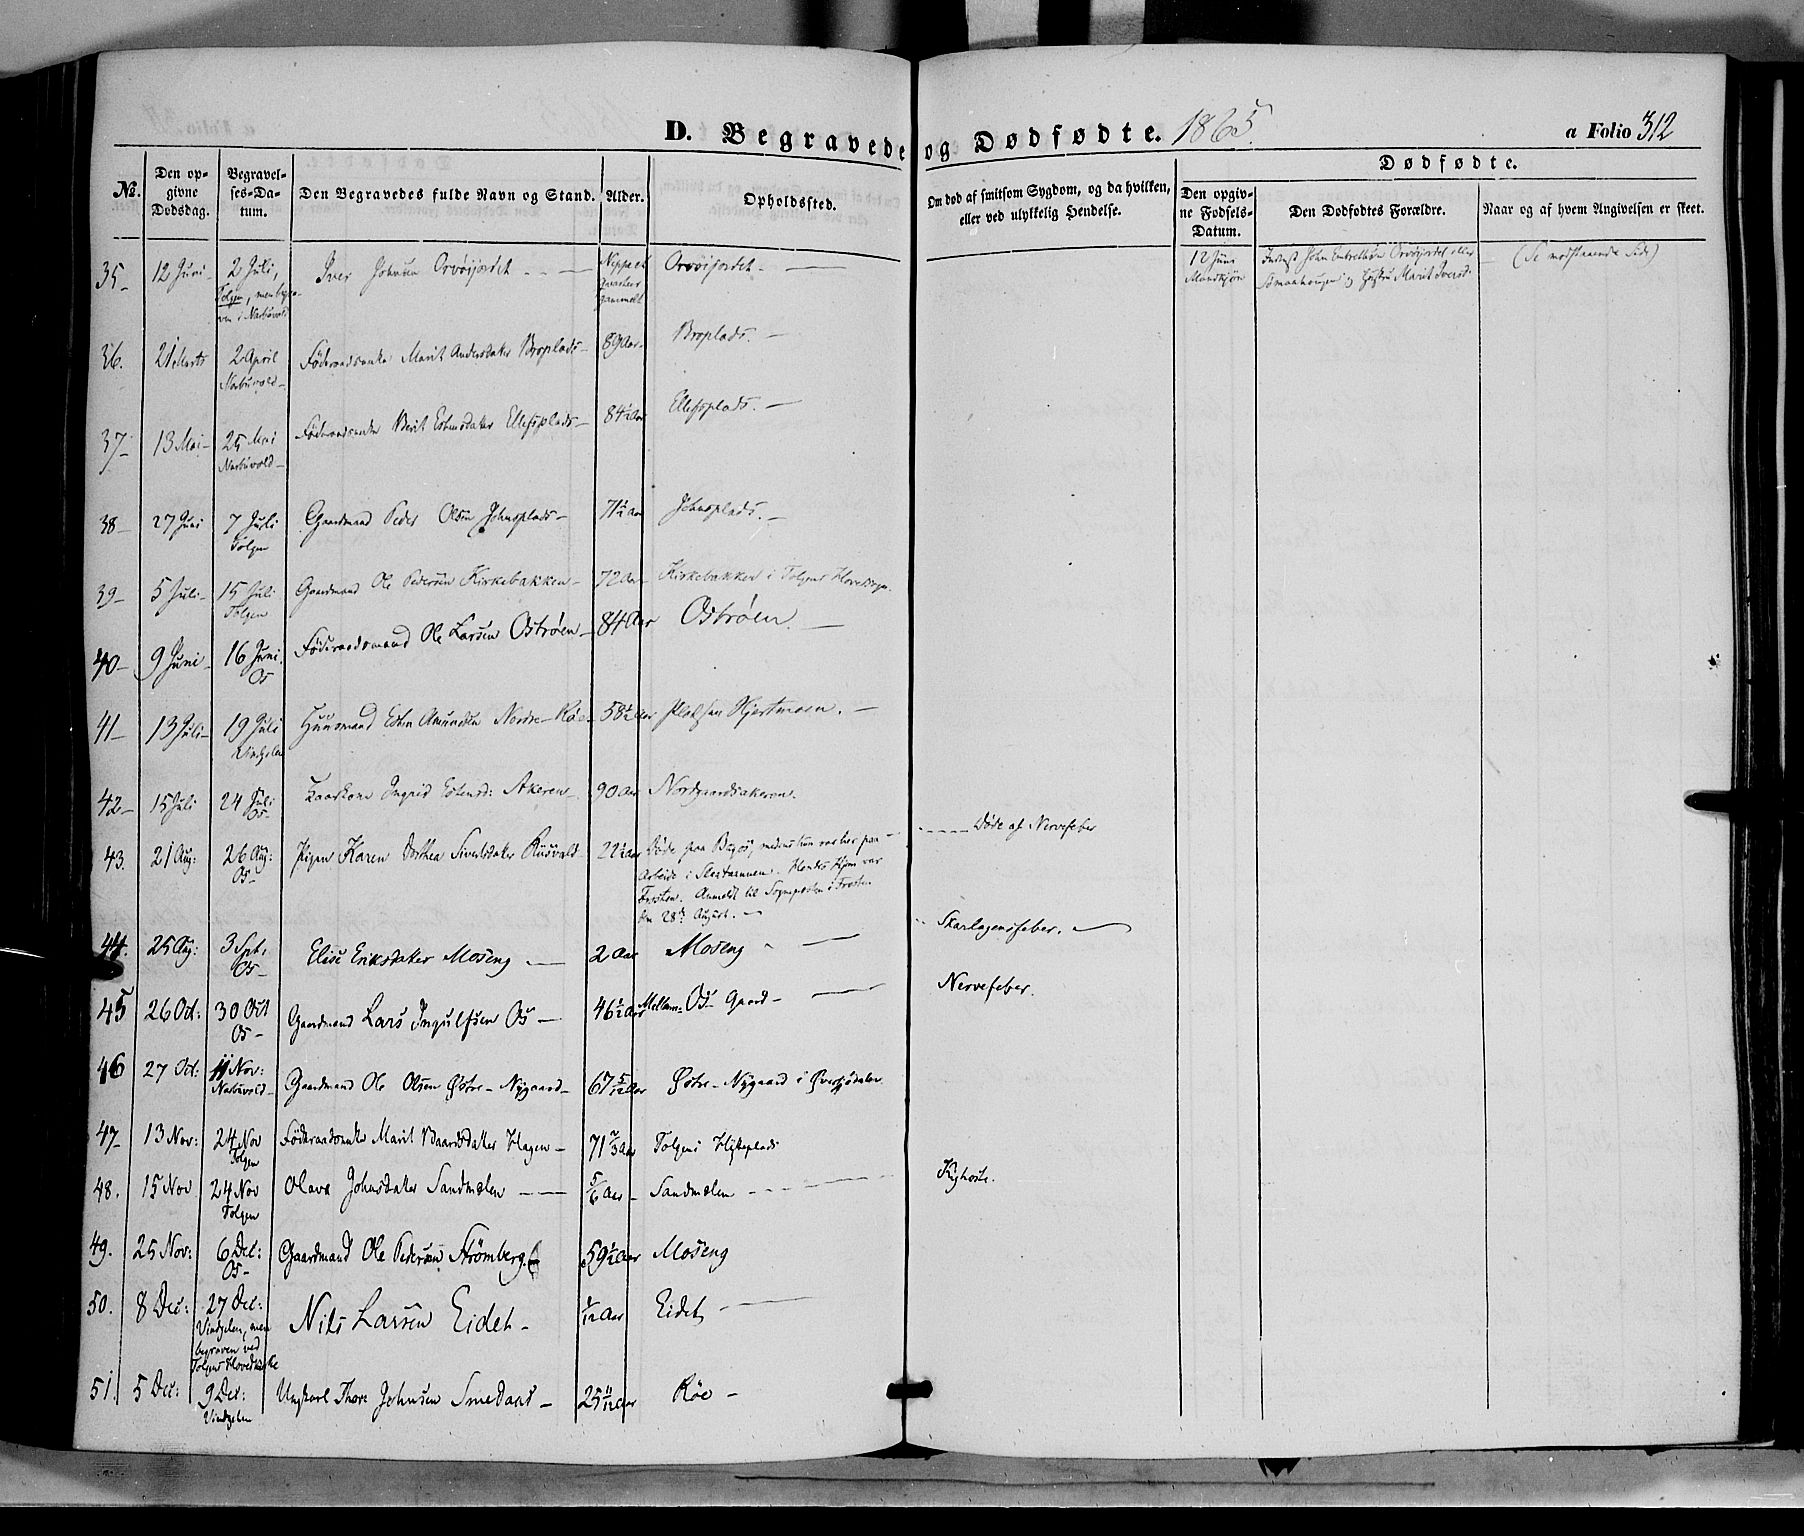 D. Begravede og Dødfødte. 1865. a Folio 312
No.
Den opgivne Dødsdag.
Begravelses-Datum.
Den Begravedes fulde Navn og Stand.
Alder.
Opholdssted.
Om død af smitsom Sygdom, og da hvilken, eller ved ulykkelig Hendelse.
Dødfødte.
Den opgivne Fødsels-Datum.
Den Dødfødtes Forældre.
Naar og af hvem Angivelsen er skeet.
35 12 Juni 2 Juli, Tolgen, men begraven i Narbuvold Iver Johnsen Orvøijordet Neppe et gammelt Orvøijordet 12 Juni Mandkjøn John Orvøijordet eller Smaahaugen og Hustru Marit Iversd. (Se modstaaende Side)
36. 21 Marts 2 April Narbuvold Føderaadsenke Marit Andersdater Broplads 89 Aar Broplads.
37 13 Mai 25 Mai Narbuvold Føderaadsenke Berit Estensdater Ellefsplads 84½ Aar Ellefsplads.
38 27 Juni 7 Juli Tolgen Gaardmand Peder Olsen Johnsplads 71½ Aar Johnsplads.
39 5 Juli 15 Juli Tolgen Gaardmand Ole Pedersen Kirkebakken 72 Aar Kirkebakken i Tolgens Hovedsogn
40 9 Juni 16 Juni Os Føderaadsmand Ole Larsen Ostrøen 84 Aar Ostrøen.
41 13 Juli 19 Juli Vindgelen Huusmand Esten Amundsen Nordre-Røe 58½ Aar Pladsen Hjertmoen.
42 15 Juli 24 Juli Os Kaarkone Ingrid Estensd: Akeren 90 Aar Nordgaardsakeren.
43. 21 Aug: 26 Aug: Os Pigen Karen Dorthea Sivertsdater Rusvold 22½ Aar Døde paa Bagaas, medens hun var her paa Arbeide i Slaataannen. Hendes Hjem var Frosten. Anmeldt til Sognepresten i Frosten den 28de August. Døde af Nervefeber
44. 25 Aug: 3 Sept. Os Elise Eriksdater Moseng 2 Aar Moseng Skarlagensfeber.
45 26 Oct: 30 Oct Os Gaardmand Lars Ingulfsen Os 46½ Aar Mellem-Os Gaard Nervefeber.
46 27 Oct: 11 Nov: Narbuvold Gaardmand Ole Olsen Østre-Nygaard 67 5/12 Aar Østre-Nygaard i Øversjødalen
47 13 Nov: 24 Nov Tolgen Føderaadsenke Marit Baardsdater Hagen 71 2/3 Aar Tolgens Hytteplads
48. 15 Nov 24 Nov Tolgen Olava Johnsdater Sandmælen 5/6 Aar Sandmælen Kighoste.
49. 25 Nov: 6 Dec: Os Gaardmand Ole Pedersen Strømberg 59½ Aar Moseng
50. 8 Dec: 27 Dec: Vindgelen, men begraven ved Tolgens Hovedkirke Nils Larsen Eidet 1/12 Aar Eidet
51. 5 Dec: 9 Dec: Vindgelen Ungkarl Thore Johnsen Smedaas 25 11/12 Aar Røe